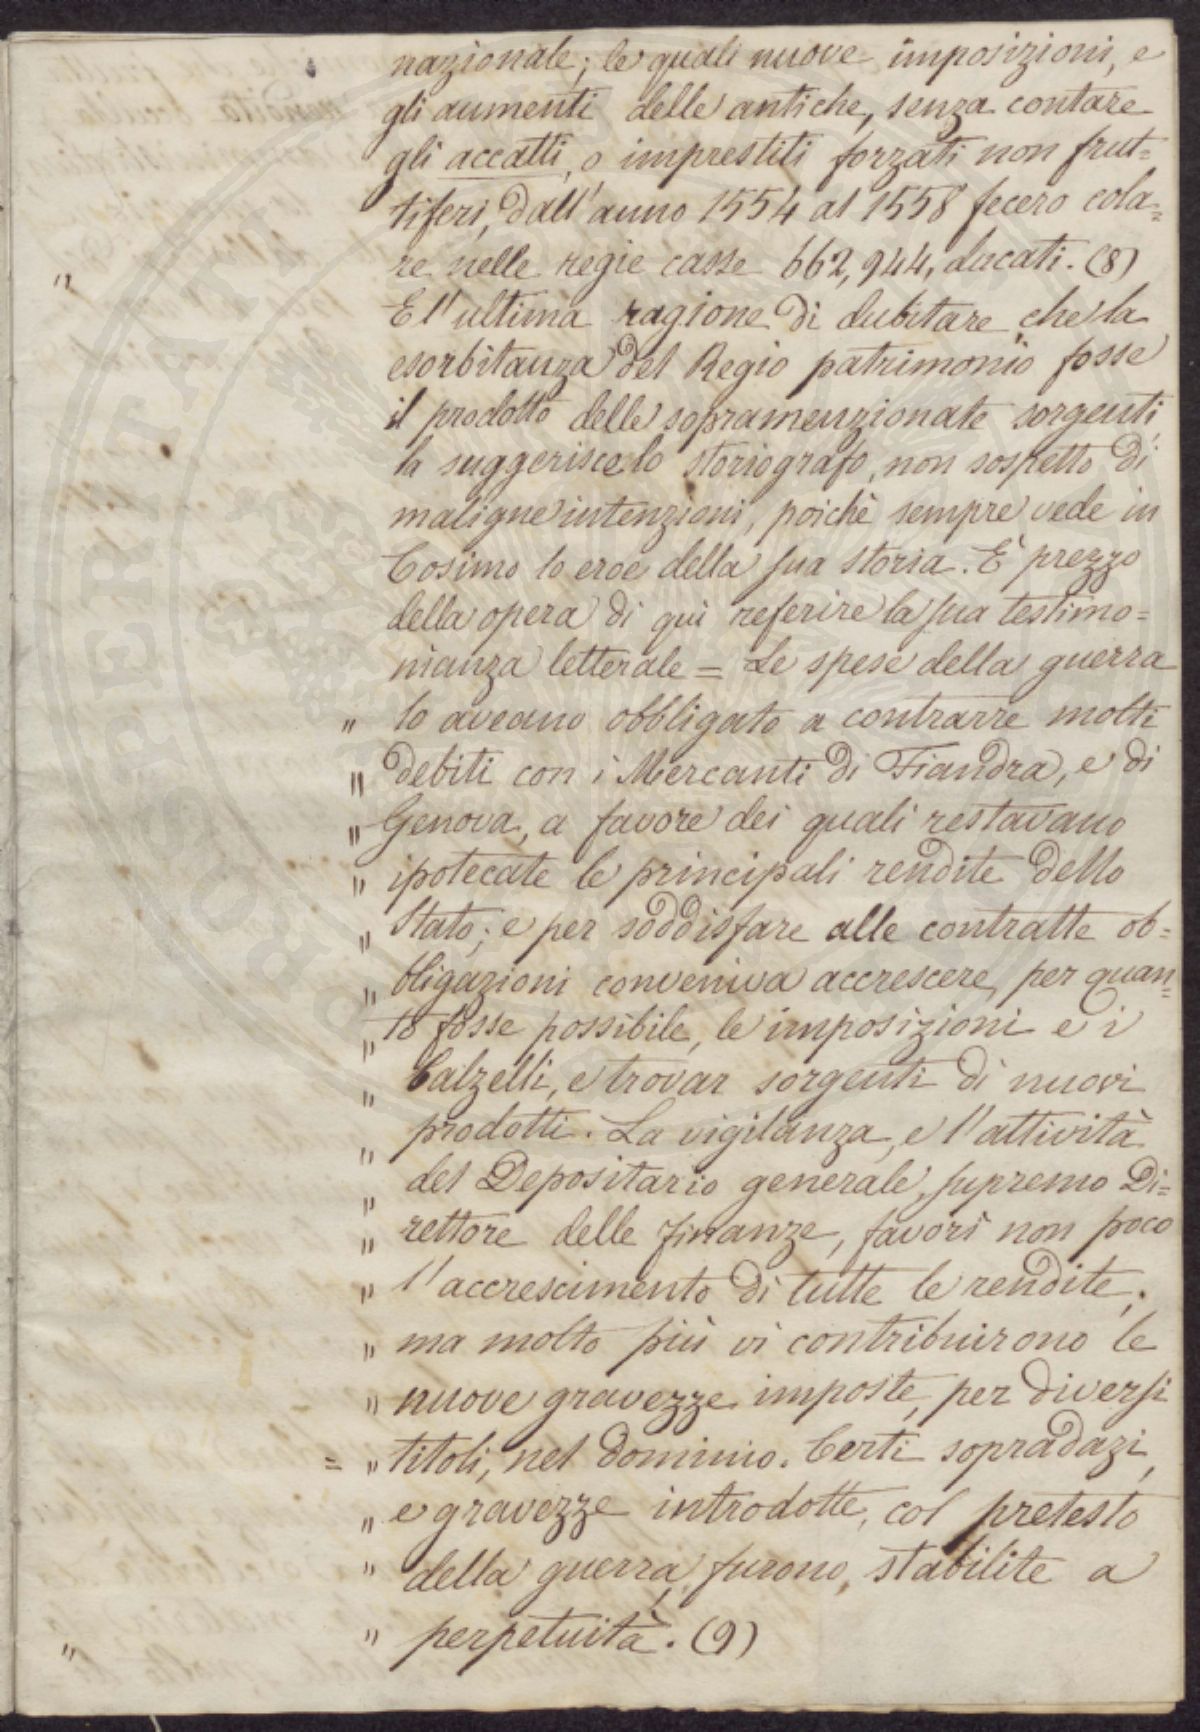 nazionale; le quali nuove imposizioni, e
gli aumenti delle antiche, senza contare
gli accatti, o imprestiti forzati non frut=
tiferi, dall'anno 1554 al 1558 fecero cola=
re nelle regie casse 662,944, ducati. (8)
E l'ultima ragione di dubitare, che la
esorbitanza del Regio patrimonio fosse
il prodotto delle sopramenzionate sorgenti
la suggerisce lo storiografo, non sospetto di
maligne intenzioni, poichè sempre vede in
Cosimo lo eroe della sua storia. È prezzo
della opera di quì referire la sua testimo=
nianza letterale = Le spese della guerra
" lo aveano obbligato a contrarre molti
" debiti con i Mercanti di Fiandra, e di
" Genova, a favore dei quali restavano
" ipotecate le principali rendite dello
" Stato; e per soddisfare alle contratte ob=
" bligazioni conveniva accrescere, per quan=
" to fosse possibile, le imposizioni e i
" balzelli, e trovar sorgenti di nuovi
" prodotti. La vigilanza, e l'attività
" del Depositario generale, supremo Di=
" rettore delle finanze, favorì non poco
" l'accrescimento di tutte le rendite;
" ma molto più vi contribuirono le
" nuove gravezze imposte, per diversi
= " titoli, nel dominio. Certi sopradazi,
" e gravezze introdotte, col pretesto
" della guerra, furono, stabilite a
" perpetuità. (9)
PROSPERITATI